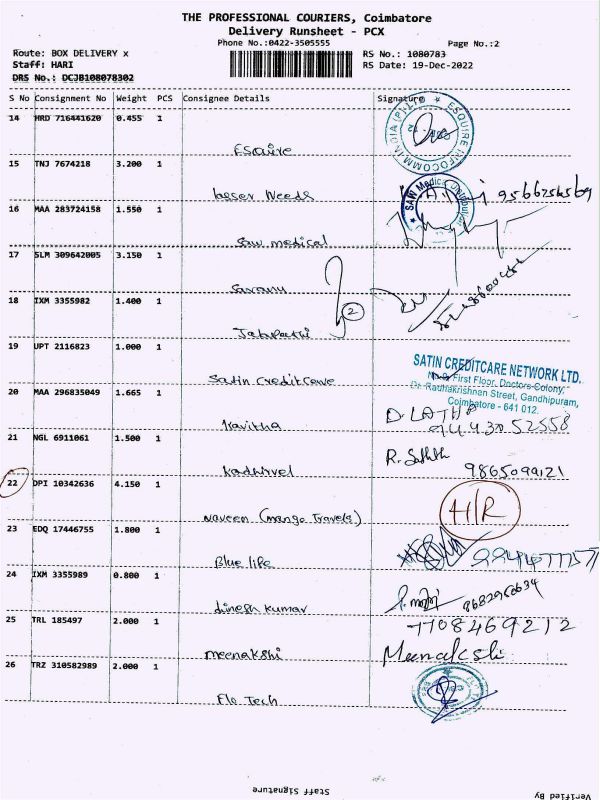 THE PROFESSIONAL COURIERS, Coimbatore
Delivery Runsheet - PCX
Phone No.:0422-3505555
Page No.:2
Route: BOX DELIVERY x
RS No.: 1080783
Staff: HARI
RS Date: 19-Dec-2022
DRS No.: DCJB108078302
S No Consignment No Weight PCS Consignee Details Signature
14 HRD 716441620 0.455 1
Esquire
ESQUIRE INFOCOMM INDIA (P) LTD
15 TNJ 7674218 3.200 1
Needs
16 MAA 283724158 1.550 1
Saw medical
SAW Medical
17 SLM 309642005 3.150 1
Saranu
2
18 IXM 3355982 1.400 1
19 UPT 2116823 1.000 1
Satin Creditcare
SATIN CREDITCARE NETWORK LTD.
First Floor, Doctors Colony,
Dr. Radhakrishnan Street, Gandhipuram,
Coimbatore - 641 012.
20 MAA 296835049 1.665 1
Kavitha
D. LATHA
9443052558
21 NGL 6911061 1.500 1
Kadhirvel
R. Sathth
9865099121
22 DPI 10342636 4.150 1
Naveen (mango Travels)
H/R
23 EDQ 17446755 1.800 1
Blue life
24 IXM 3355989 0.800 1
dinesh kumar
9682960634
25 TRL 185497 2.000 1
7708469212
meenakshi
Meenakshi
26 TRZ 310582989 2.000 1
Flo Tech
Staff Signature
Verified By